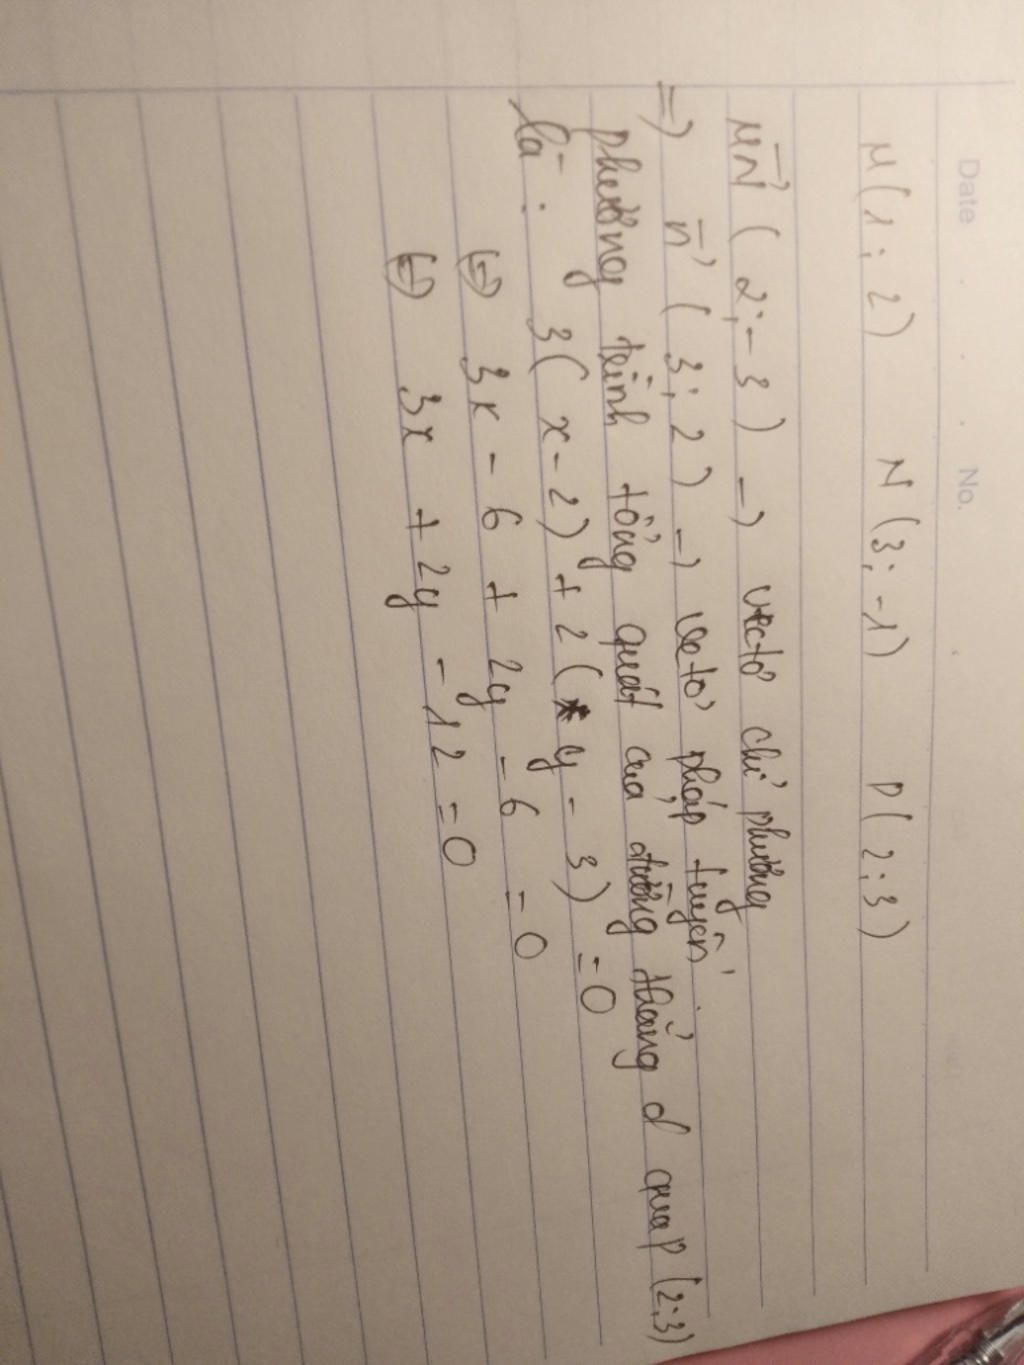 Date No.
M(1;2) N(3;-1) P(2;3)
MN→(2;-3) → vectơ chỉ phương
=> n→(3;2) → vectơ pháp tuyến.
phương trình tổng quát của đường thẳng d qua P(2;3)
là: 3(x-2)+2(y-3)=0
(=) 3x-6+2y-6=0
(=) 3x+2y-12=0